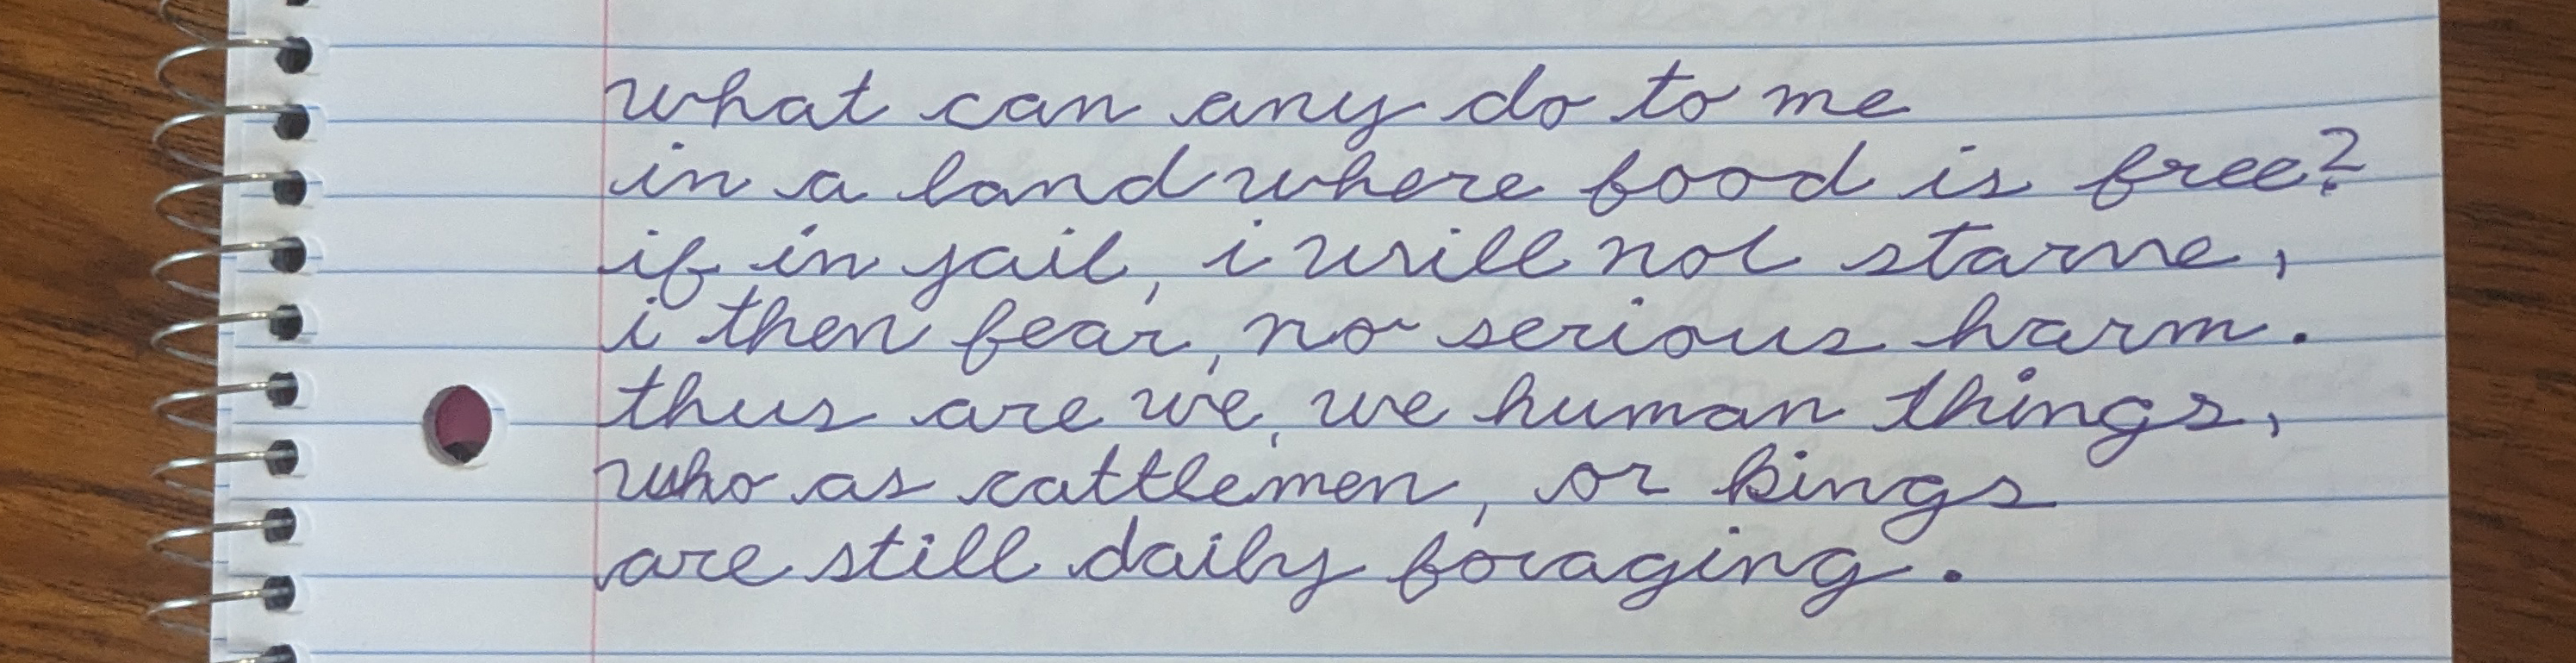 what can any do to me
in a land where food is free?
if in jail, i will not starve,
i then fear, no serious harm.
thus are we, we human things,
who as cattlemen, or kings
are still daily foraging.